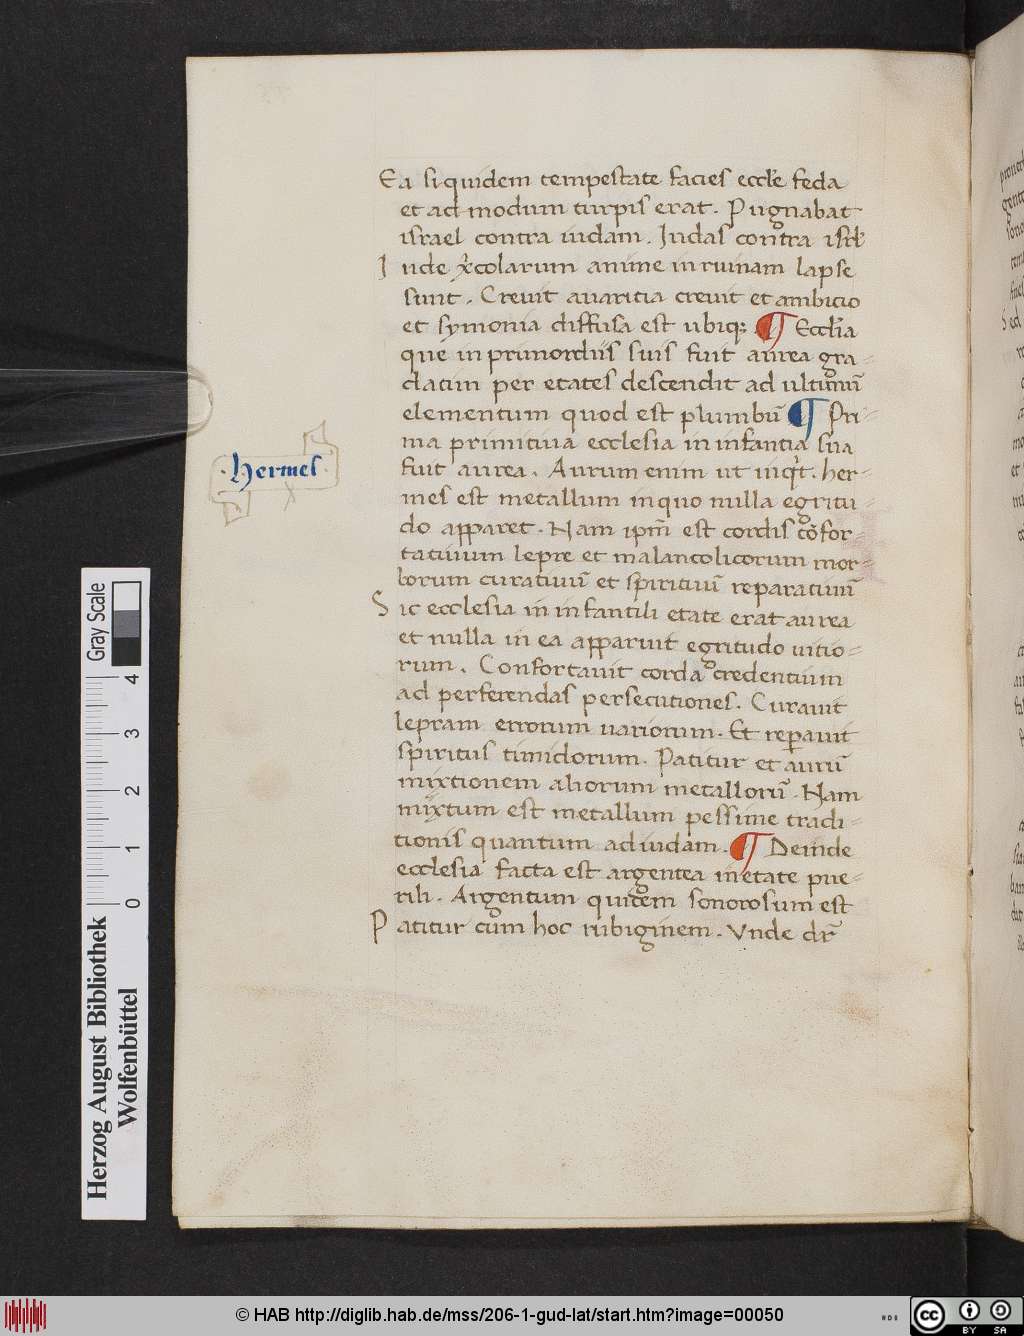 Ea siquidem tempestate facies eccl̄e feda
et ad modum turpis erat. Pugnabat
israel contra iudam. Iudas contra isrł
Inde xp̄colarum anime in ruinam lapse
sunt. Crevit avaritia crevit et ambicio
et symonia diffusa est ubiqꝫ ¶ Eccl̄ia
que in primordiis suis fuit aurea gra=
datim per etates descendit ad ultimū
elementum quod est plumbū ¶ Pri=
ma primitiva ecclesia in infantia sua
fuit aurea. Aurum enim ut inqͥt. her=
mes est metallum in quo nulla egritu=
do apparet. Nam ipm̄ est cordis cōfor=
tativum lepre et malancolicorum mor=
borum curativū et spirituū reparativū
Sic ecclesia in infantili etate erat aurea
et nulla in ea apparuit egritudo vitio=
rum. Confortavit corda credentium
ad perferendas persecutiones. Curavit
lepram errorum variorum. Et reparavit
spiritus timidorum. Patitur et aurū
mixtionem aliorum metallorū. Nam
mixtum est metallum pessime tradi=
tionis quantum ad iudam. ¶ Deinde
ecclesia facta est argentea in etate pue=
rili. Argentum quidem sonorosum est
Patitur cum hoc rubiginem. Unde dr̄
·hermes·
Gray Scale
4
3
2
1
0
Herzog August Bibliothek
Wolfenbüttel
© HAB http://diglib.hab.de/mss/206-1-gud-lat/start.htm?image=00050
cc BY SA